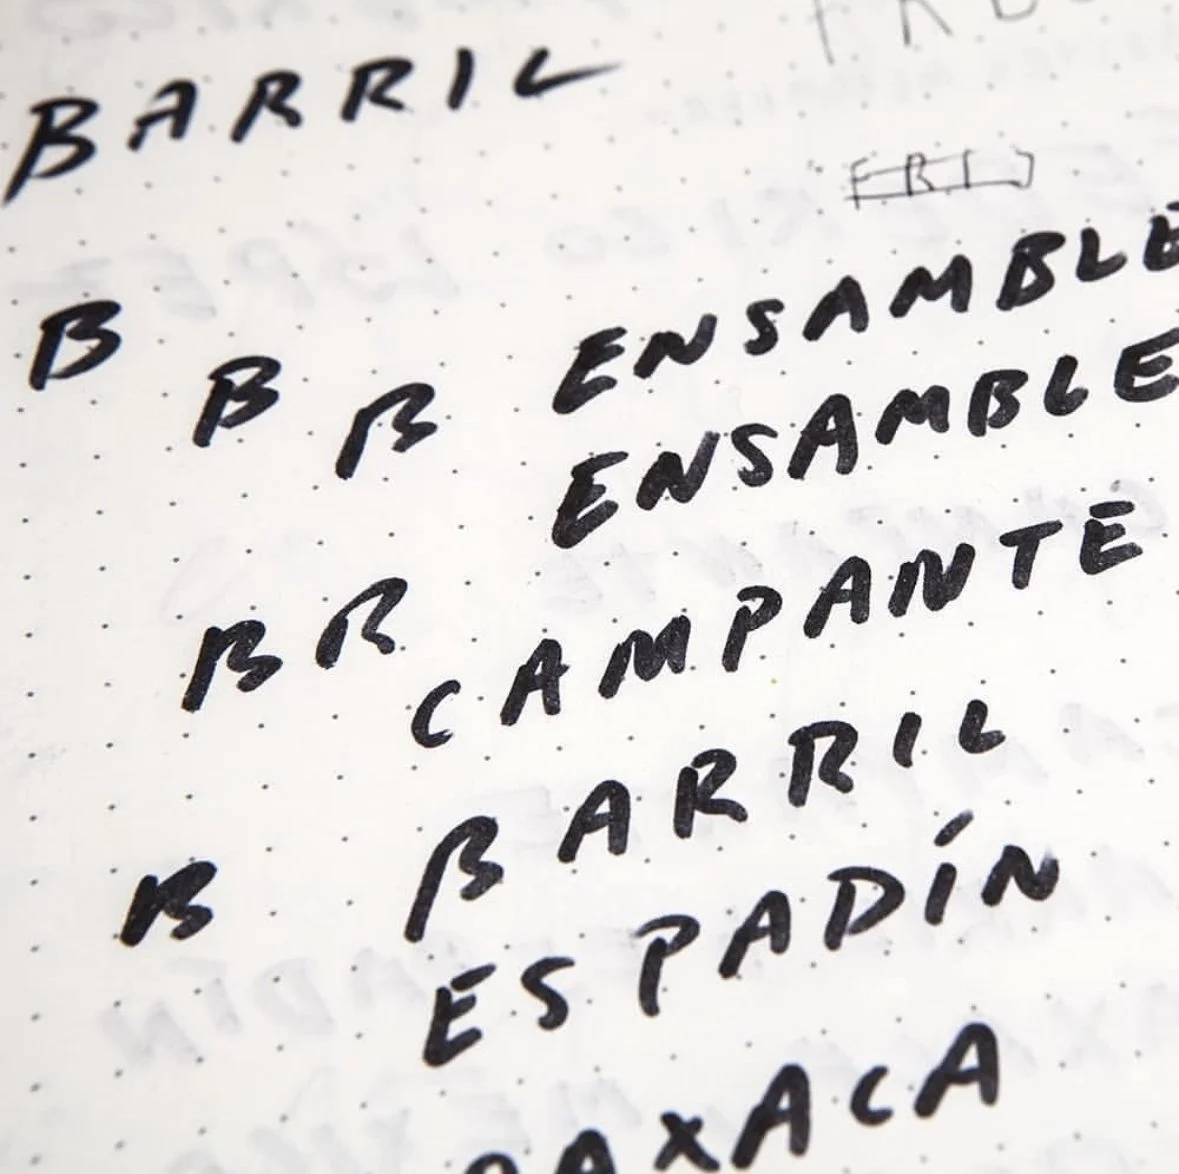 BARRIL
B B B ENSAMBLE
ENSAMBLE
B R CAMPANTE
B BARRIL
ESPADÍN
OAXACA